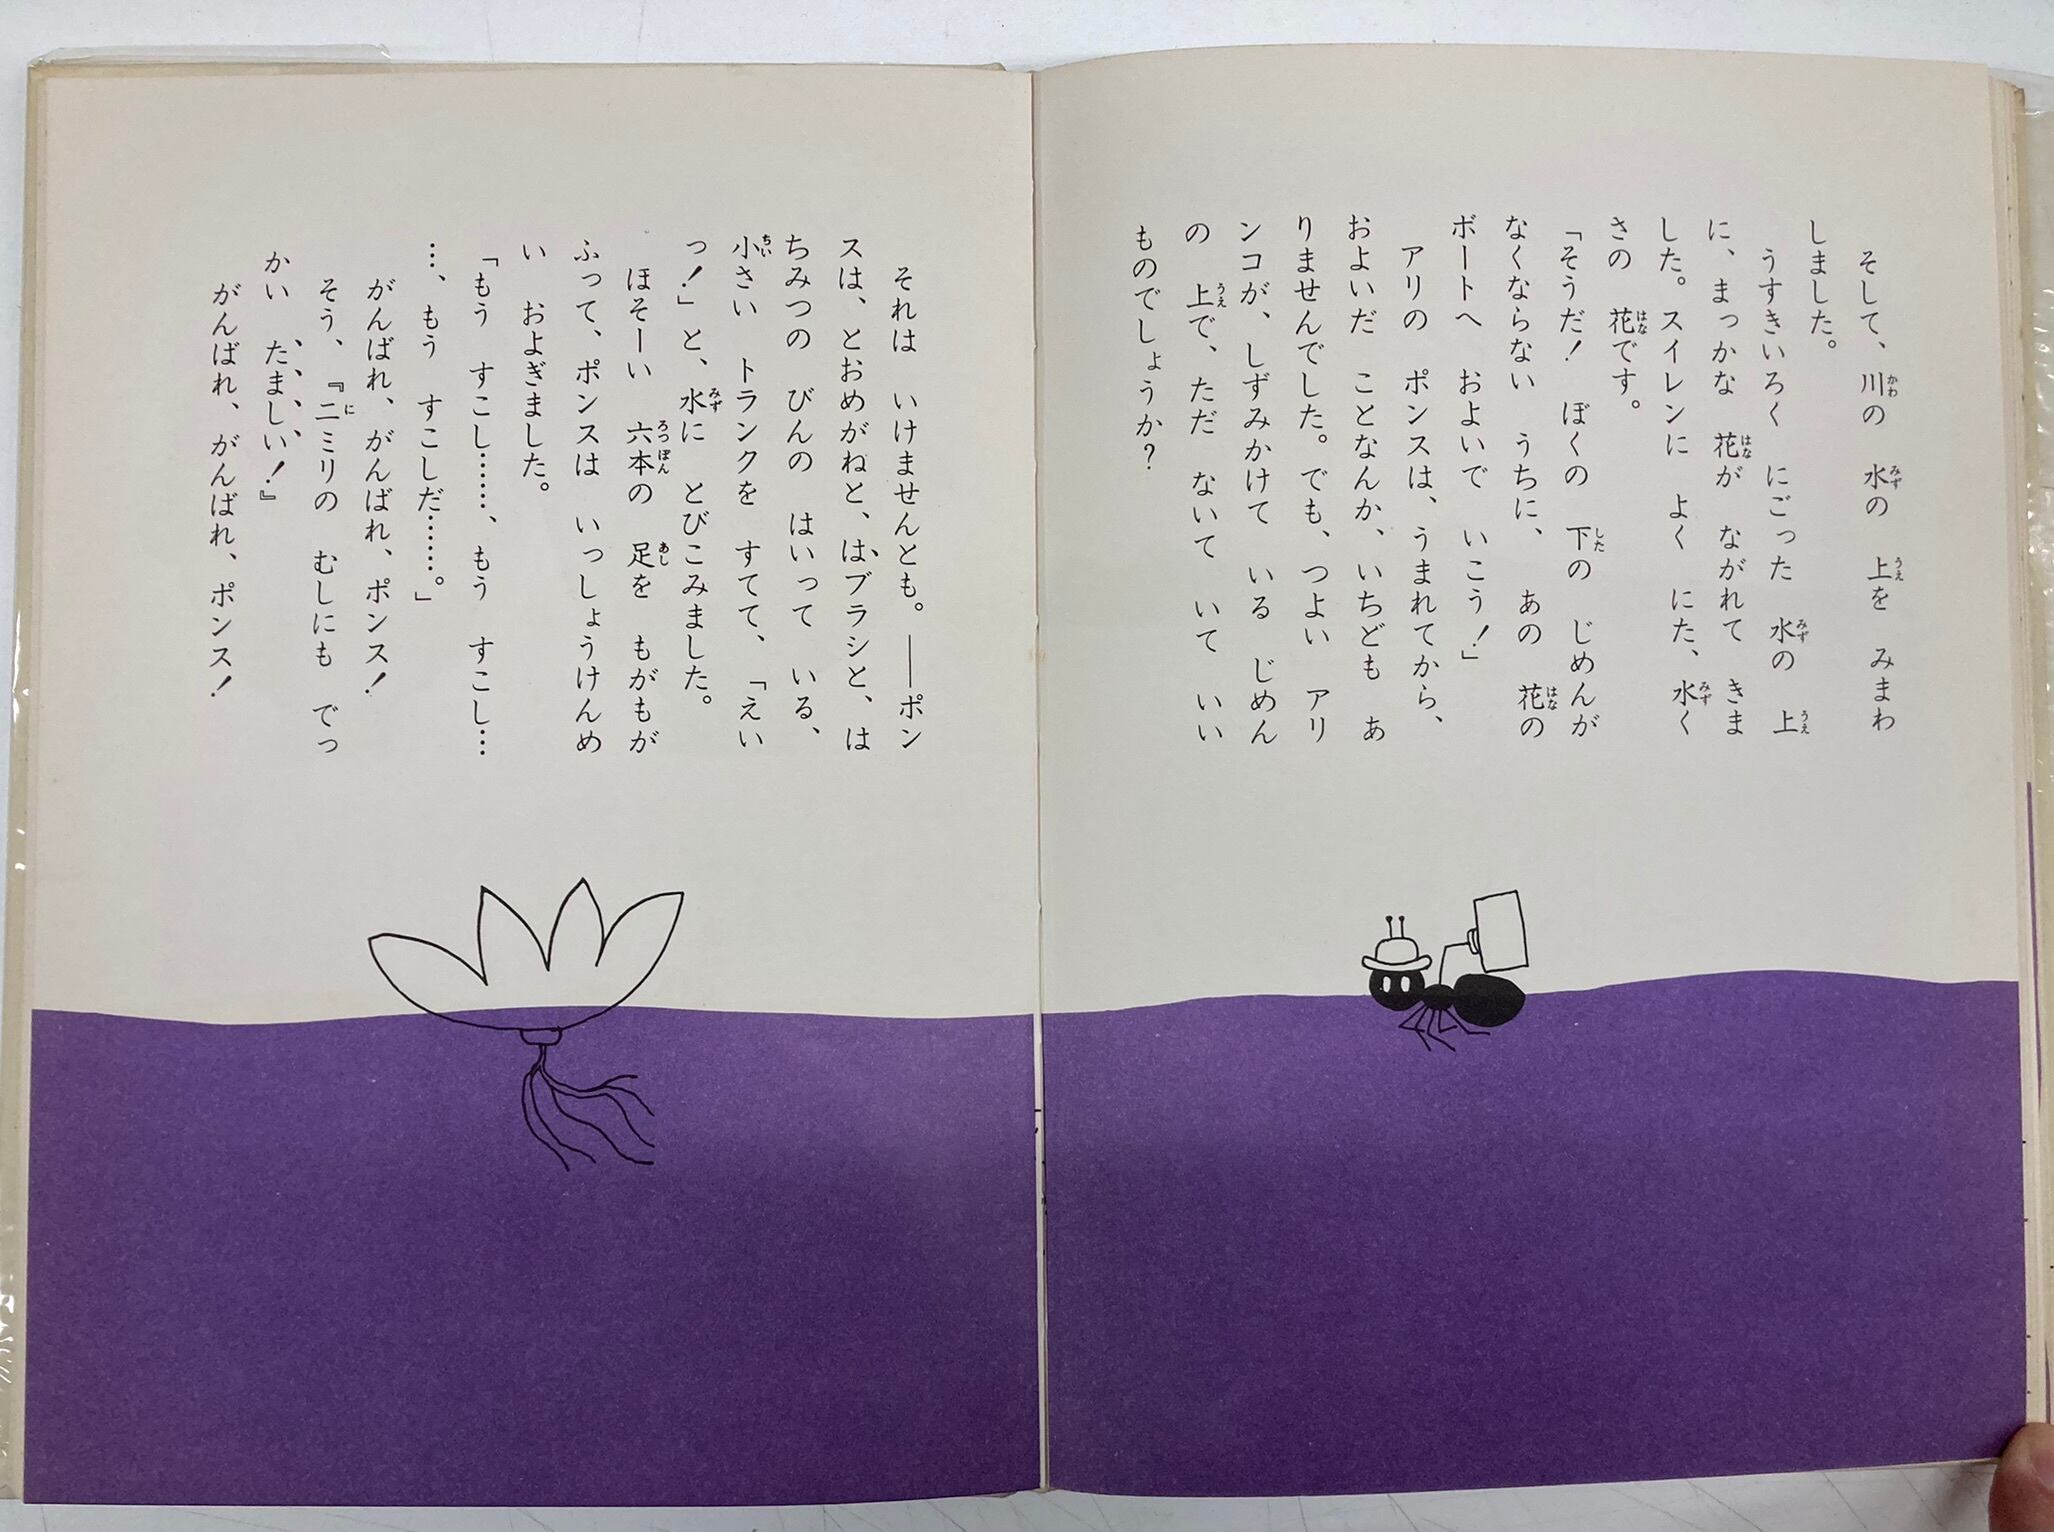 そして、川の　水の　上を　みまわ
しました。
うすきいろく　にごった　水の　上
に、まっかな　花が　ながれて　きま
した。スイレンに　よく　にた、水く
さの　花です。
「そうだ！　ぼくの　下の　じめんが
なくならない　うちに、　あの　花の
ボートへ　およいで　いこう！」
アリの　ポンスは、うまれてから、
およいだ　ことなんか、いちども　あ
りませんでした。でも、つよい　アリ
ンコが、しずみかけて　いる　じめん
の　上で、ただ　ないて　いて　いい
ものでしょうか？
それは　いけませんとも。――ポン
スは、とおめがねと、はブラシと、は
ちみつの　びんの　はいって　いる、
小さい　トランクを　すてて、「えい
っ！」と、水に　とびこみました。
ほそーい　六本の　足を　もがもが
ふって、ポンスは　いっしょうけんめ
い　およぎました。
「もう　すこし……、もう　すこし…
…、もう　すこしだ……。」
がんばれ、がんばれ、ポンス！
そう、『二ミリの　むしにも　でっ
かい　たましい！』
がんばれ、がんばれ、ポンス！